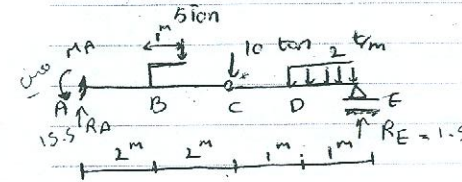 5 ton
1 m
10 ton
2 t/m
MA
A
B
C
D
E
15.5
RA
RE = 1.5
2 m
2 m
1 m
1 m